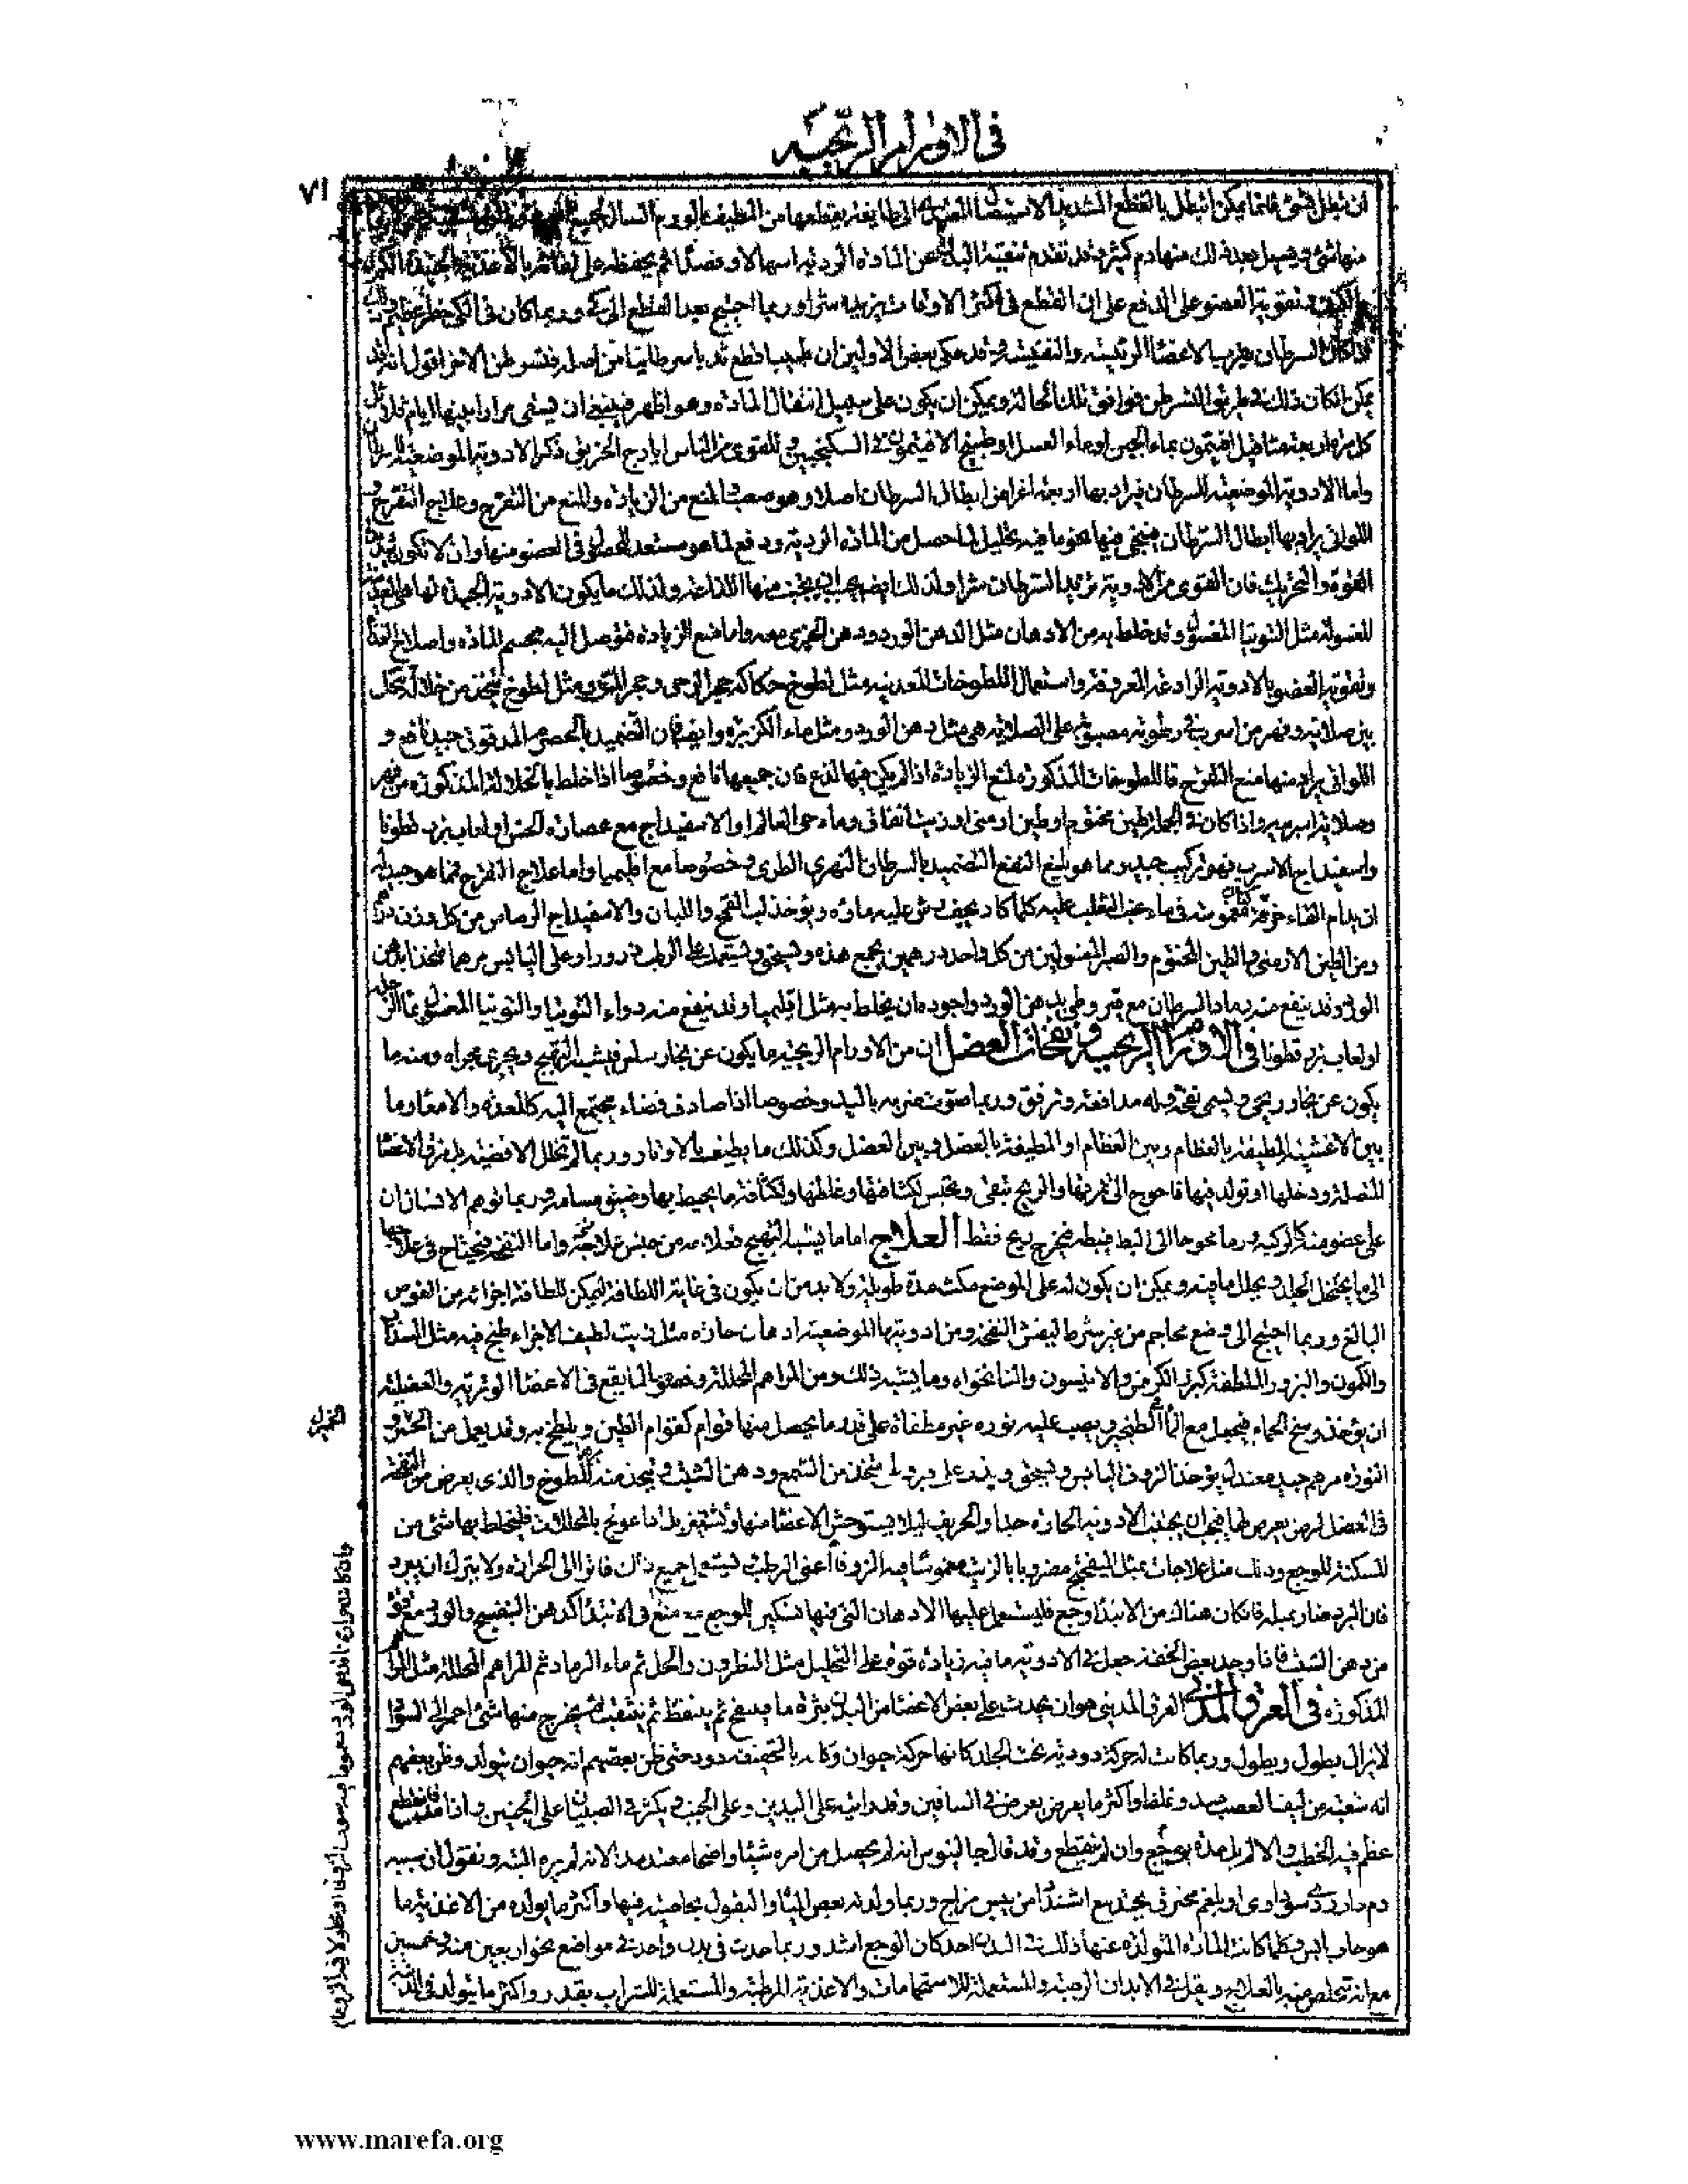 في الاورام الريحية
٧١
ان يبطل شئ فانما يمكن ان يبطل بالقطع الشديد الاستيصال المتعدى الى طايفة يقطعها من المطيف بالورم السال لجميع
منها شئ ويسيل بعد ذلك منها دم كثير وقد تقدم بتنقية البدن عن المادة الردية اسهالا وفصدا ثم يحفظه على نقائه بالاغذية الجيدة
وتقوية العضو على الدفع على ان القطع في اكثر الاوقات يزيده شرا وربما احتيج بعد القطع الى كى وربما كان في الكى خطر عظيم
اذا كان السرطان بقرب الاعضا الرئيسة والنفيسة وقد حكى بعض الاولين ان طبيبا قطع ثديا سرطانيا من اصله فتسرطن الاخر اقول انه
يمكن ان كان ذلك في طريق التسرطن فوافق تلك الحالة ويمكن ان يكون على سبيل انتقال المادة وهو اظهر فينبغى ان يسقى مرارا بينها ايام قلايل
كل مرة اربعة مثاقيل افتيمون بماء الجبن او ماء العسل او طبيخ الافتيمون في السكنجبين وللقوى من الناس ايارج الخربق ذكر الادوية الموضعية للسرطان
واما الادوية الموضعية للسرطان فيراد بها اربعة اغراض ابطال السرطان اصلا وهو صعب والمنع من الزيادة والمنع من التقرح وعلاج التقرح و
اللواتى يراد بها ابطال السرطان فينحى فيها نحو ما فيه تحليل لما حصل من المادة الردية ودفع لما هو مستعد للحصول في العضو منها وان لا تكون شديدة
القوة والتحريك فان القوى من الادوية تزيد السرطان شرا ولذلك ايضا يجب ان يجتنب منها اللذاعة ولذلك ما يكون الادوية الجيدة لها هى المعدنية
المغسولة مثل التوتيا المغسول وقد خلط به من الادهان مثل الدهن الورد ودهن الخيرى معه واما منع الزيادة فيوصل اليه بحسم المادة واصلاح الغذا
وتقوية العضو بالادوية الرادعة المعروفة واستعمال اللطوخات المعدنية مثل لطوخ حكاكة حجر الرحى وحجر المسن ومثل لطوخ يتخذ من حلالة تنحل
بين صلاية وفهر من اسرب في رطوبة مصبوبة على الصلاية هى مثل دهن الورد ومثل ماء الكزبرة وايضا فان التضميد بالحصرم المدقوق جيد نافع و
اللواتى يراد منها منع التقرح فاللطوخات المذكورة لمنع الزيادة اذا لم يكن فيها لذع فان جميعها نافع وخصوصا اذا خلط بالحلالة المذكورة من فهر
وصلاية اسربية واذا كان في الجملة طين مختوم او طين ارمنى او زيت انفاق وماء حى العالم او الاسفيداج مع عصارة الخس او لعاب بزر قطونا
واسفيداج الاسرب فهو تركيب جيد ومما هو بليغ النفع التضميد بالسرطان النهرى الطرى وخصوصا مع اقليميا واما علاج التقرح فمما هو جيد له
ان يدام القاء خرقة كتان مغموسة في ماء عنب الثعلب عليه كلما كاد يجف رش عليه ماؤه ويؤخذ لب القمح واللبان والاسفيداج الرصاص من كل وزن درهم
ومن الطين الارمنى والطين المختوم والصبر المغسولين من كل واحد درهمين يجمع هذه ويسحق ويستعمل على الرطب ذرورا وعلى اليابس مرهما متخذا بدهن
الورد وقد ينفع منه رماد السرطان مع قيروطى بدهن الورد واجوده ان يخلط به مثل اقليميا وقد ينفع منه دواء التوتيا والتوتيا المغسول بماء الرجلة
او لعاب بزر قطونا في الاورام الريحية ونفخات العضل ان من الاورام الريحية ما يكون عن بخار سلس فيشبه التهيج ويجرى مجراه ومنه ما
يكون عن بخار ريحى ويسمى نفخة وله مدافعة وترقق وربما صوتت ضربه باليد وخصوصا اذا صادف فضاء يجتمع اليه كالمعدة والامعاء وما
بين الاغشية المطيفة بالعظام وبين العظام او المطيفة بالعضل وبين العضل وكذلك ما يطيف بالاوتار وربما لم تخلل الافضية بل مزق الاعضا
المتصلة ودخلها او تولد فيها فاحوج الى تمزيقها والريح تبقى وتحتبس لكثافتها وغلظها ولكثافة ما يحيط بها وضيق مسامه وربما توهم الانسان ان
على عضو منه كالركبة ورما محوجا الى البط فيبطه فيخرج ريح فقط العلاج اما ما يشبه التهيج فعلاجه من جنس علاجه واما النفخة فيحتاج في علاجها
الى ما يخلخل الجلد ويحلل ما فيه ويمكن ان يكون له على الموضع مكث مدة طويلة ولا بد من ان يكون في غاية اللطافة ليمكن للطافة اجزائه من الغوص
البالغ وربما احتيج الى وضع محاجم من غير شرط ليفش النفخة ومن ادويتها الموضعية ادهان حارة مثل زيت لطيف الاجزاء طبخ فيه مثل السذاب
والكمون والبزور الملطفة كبزر الكرفس والانيسون والنانخواه وما يشبه ذلك ومن المراهم المحللة وخصوصا لما يقع في الاعضا الوترية والعضلية
ان يؤخذ وسخ الحمام فيجعل مع الماء في الطنجير ويصب عليه نورة غير مطفاة على قدر ما يحصل منها قوام كقوام الطين ويلطخ به وقد يعمل من الخمر و
النورة مرهم جيد معتدل يؤخذ الزوفا اليابس ويسحق ويذر على مرهم متخذ من الشمع ودهن الشبت ويتخذ منه كاللطوخ والذى يعرض من النفخة
في العضل لمن يعرض لها فيجب ان يجتنب الادوية الحارة جدا والحريفة لئلا يستوحش الاعضا منها وتشتد بل اذا عولج بالمحللات فليخلط بها شئ من
المسكنة للوجع وذلك مثل علاجات بمثل الميفختج مضروبا بالزيت مغموسا فيه الزوفا اعنى الرطب يستعمل جميع ذلك فاترا الى الحرارة ولا يترك ان يبرد
فان البرد ضار بمثله فان كان هناك من الابتدا وجع فليستعمل عليها الادهان التى فيها تسكين للوجع مع منع في الابتدا كدهن البنفسج والورد مع قوة
من دهن الشبت فاذا وجد بعض الخفة جعل في الادوية ما فيه زيادة قوة على التحليل مثل النطرون والخل ثم ماء الرماد ثم المراهم المحللة مثل المراهم
المذكورة في العرق المدنى العرق المدينى هو ان يحدث على بعض الاعضا من البدن بثرة ما ينتفخ ثم يتنفط ثم يتثقب ثم يخرج منها شئ احمر الى السواد
لا يزال يطول ويطول وربما كانت له حركة دودية تحت الجلد كانها حركة حيوان وكانه بالحقيقة دود حتى ظن بعضهم انه حيوان يتولد وظن بعضهم
انه شعبة من ليف العصب فسد وغلظ واكثر ما يعرض يعرض في الساقين وقد رايته على اليدين وعلى الجنب ويكثر في الصبيان على الجنبين واذا مد فانقطع
عظم فيه الخطب والالم بل مده يوجع وان لم ينقطع وقد قال جالينوس انه لم يحصل من امره شيئا واضحا معتمدا لانه لم يره البتة ونقول ان سببه
دم حار ردى سوداوى او بلغم محترق يحتد مع اشتداد من يبس مزاج وربما ولدته بعض المياه والبقول بخاصية فيها واكثر ما يولده من الاغذية ما
هو حار يابس وكلما كانت المادة المتولدة عنها ذلك في البدن احد كان الوجع اشد وربما حدث في بدن واحد في مواضع نحو اربعين منه وخمسين
مع انه يتخلص منه بالعلاج ويقل في الابدان الرطبة والمستعملة للاستحمامات والاغذية المرطبة والمستعملة للشراب بقدر واكثر ما يتولد في المدينة
www.marefa.org